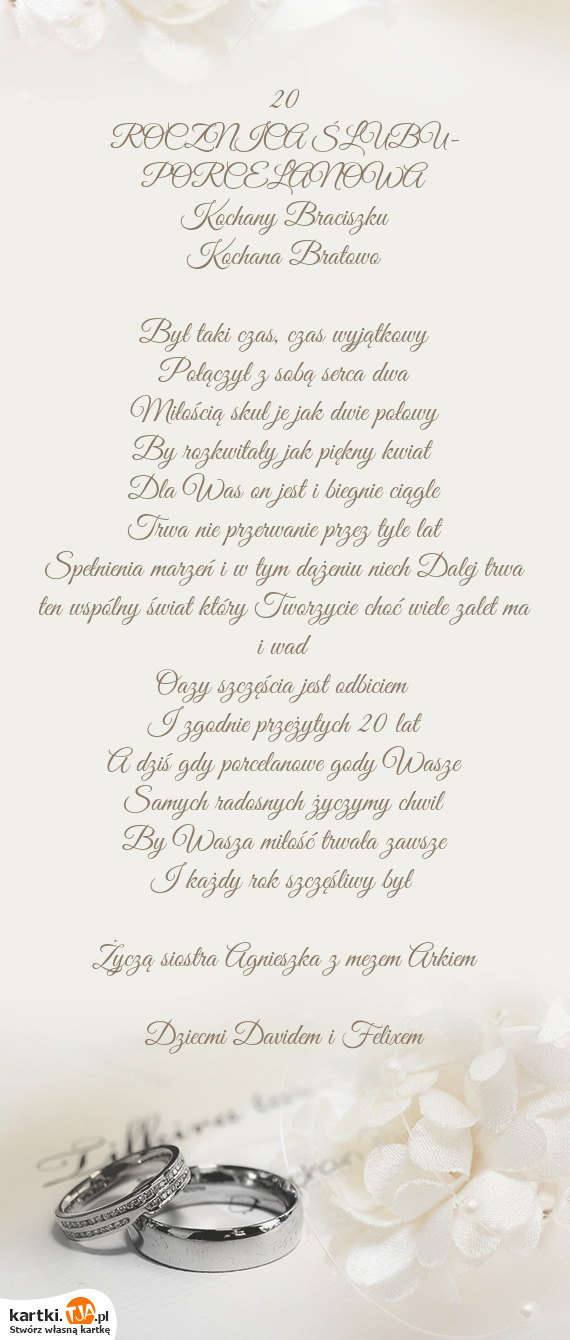 20
ROCZNICA ŚLUBU-
PORCELANOWA
Kochany Braciszku
Kochana Bratowo
Był taki czas, czas wyjątkowy
Połączył z sobą serca dwa
Miłością skuł je jak dwie połowy
By rozkwitały jak piękny kwiat
Dla Was on jest i biegnie ciągle
Trwa nie przerwanie przez tyle lat
Spełnienia marzeń i w tym dążeniu niech Dalej trwa
ten wspólny świat który Tworzycie choć wiele zalet ma
i wad
Oazy szczęścia jest odbiciem
I zgodnie przeżytych 20 lat
A dziś gdy porcelanowe gody Wasze
Samych radosnych życzymy chwil
By Wasza miłość trwała zawsze
I każdy rok szczęśliwy był
Życzą siostra Agnieszka z mezem Arkiem
Dziecmi Davidem i Felixem
kartki.TJA.pl
Stwórz własną kartkę